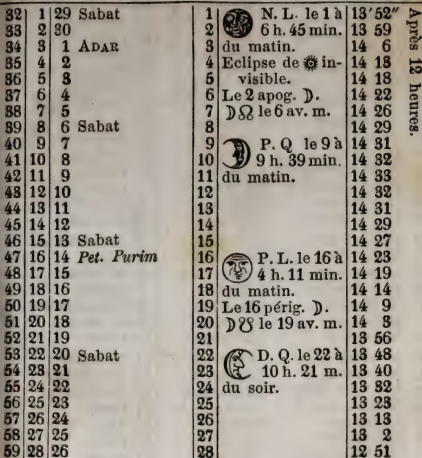 32 1 29 Sabat 1 N. L. le 1 à 13'52"
33 2 30 2 6 h. 45 min. 13 59
34 3 1 ADAR 3 du matin. 14 6
35 4 2 4 Eclipse de ☀ in- 14 13
36 5 3 5 visible. 14 18
37 6 4 6 Le 2 apog. ☽. 14 22
38 7 5 7 ☽☊ le 6 av. m. 14 26
39 8 6 Sabat 8 14 29
40 9 7 9 P. Q le 9 à 14 31
41 10 8 10 9 h. 39 min. 14 32
42 11 9 11 du matin. 14 33
43 12 10 12 14 32
44 13 11 13 14 31
45 14 12 14 14 29
46 15 13 Sabat 15 14 27
47 16 14 Pet. Purim 16 P. L. le 16 à 14 23
48 17 15 17 4 h. 11 min. 14 19
49 18 16 18 du matin. 14 14
50 19 17 19 Le 16 périg. ☽. 14 9
51 20 18 20 ☽☋ le 19 av. m. 14 3
52 21 19 21 13 56
53 22 20 Sabat 22 D. Q. le 22 à 13 48
54 23 21 23 10 h. 21 m. 13 40
55 24 22 24 du soir. 13 32
56 25 23 25 13 23
57 26 24 26 13 13
58 27 25 27 13 2
59 28 26 28 12 51
Après 12 heures.